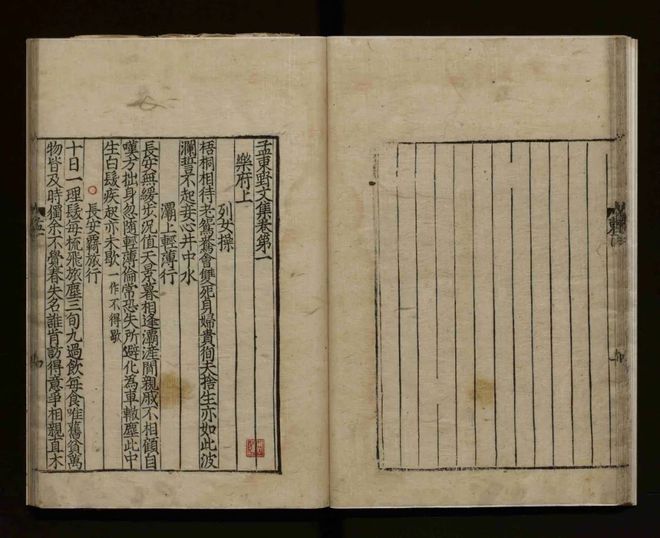 孟東野文集卷第一
樂府上
列女操
梧桐相待老鴛鴦會雙死貞婦貴徇夫捨生亦如此波
瀾誓不起妾心井中水
灞上輕薄行
長安無緩步況值天景暮相逢灞滻間親戚不相顧自
嘆方拙身忽隨輕薄倫常恐失所避化為車轍塵此中
生白髮疾起亦未歇一作不得歇
長安羇旅行
十日一理髮每梳飛旅塵三旬九過飲每食唯舊貧萬
物皆及時獨余不覺春失名誰肯訪得意爭相親直木